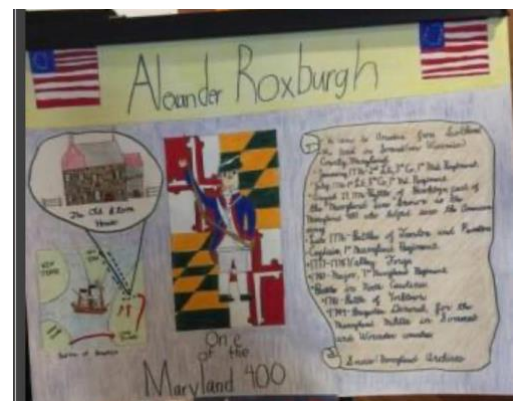 Alexander Roxburgh
The Old Stone
House
New
Jersey
Battle of Brooklyn
One
of the
Maryland 400
He came to America from Scotland
He lived in Somerset (Worcester)
County Maryland
January 1776-2nd Lt, 3rd Co, 1st Md Regiment
July 1776-1st Lt, 3rd Co, 1st Md Regiment
August 27, 1776 Battle of Brooklyn part of
the Maryland Line known as the
Maryland 400 who helped save the American
army
Late 1776-Battles of Trenton and Princeton
Captain 1st Maryland Regiment
1777-1778 Valley Forge
1780-Major, 7th Maryland Regiment
Battles in North Carolina
1781-Battle of Yorktown
1794-Brigadier General for the
Maryland Militia in Somerset
and Worcester counties
Maryland Archives